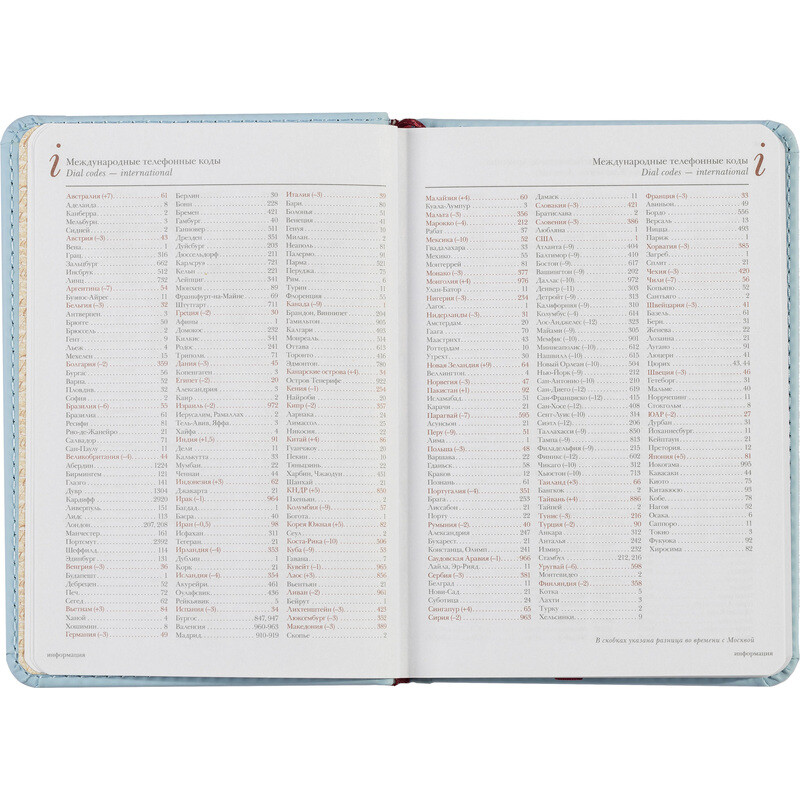 i
Международные телефонные коды
Dial codes — international
Австралия (+7) 61
Аделаида 8
Канберра 2
Мельбурн 3
Сидней 2
Австрия (–3) 43
Вена 1
Грац 316
Зальцбург 662
Инсбрук 512
Линц 732
Аргентина (–7) 54
Буэнос-Айрес 11
Бельгия (–3) 32
Антверпен 3
Брюгге 50
Брюссель 2
Гент 9
Льеж 4
Мехелен 15
Болгария (–2) 359
Бургас 56
Варна 52
Пловдив 32
София 2
Бразилия (–6) 55
Бразилиа 61
Ресифи 81
Рио-де-Жанейро 21
Салвадор 71
Сан-Паулу 11
Великобритания (–4) 44
Абердин 1224
Бирмингем 121
Глазго 141
Дувр 1304
Кардифф 2920
Ливерпуль 151
Лидс 113
Лондон 207, 208
Манчестер 161
Портсмут 2392
Шеффилд 114
Эдинбург 131
Венгрия (–3) 36
Будапешт 1
Дебрецен 52
Печ 72
Сегед 62
Вьетнам (+3) 84
Ханой 4
Хошимин 8
Германия (–3) 49
Берлин 30
Бонн 228
Бремен 421
Гамбург 40
Ганновер 511
Дрезден 351
Дуйсбург 203
Дюссельдорф 211
Карлсруэ 721
Кельн 221
Лейпциг 341
Мюнхен 89
Франкфурт-на-Майне 69
Штутгарт 711
Греция (–2) 30
Афины 1
Домокос 232
Килкис 341
Родос 241
Триполи 71
Дания (–3) 45
Копенгаген 3
Египет (–2) 20
Александрия 3
Каир 2
Израиль (–2) 972
Иерусалим, Рамаллах 2
Тель-Авив, Яффа 3
Хайфа 4
Индия (+1,5) 91
Дели 11
Калькутта 33
Мумбаи 22
Ченнаи 44
Индонезия (+3) 62
Джакарта 21
Ирак (–1) 964
Багдад 1
Басра 40
Иран (–0,5) 98
Исфахан 311
Тегеран 21
Ирландия (–4) 353
Дублин 1
Корк 21
Исландия (–4) 354
Акурейри 461
Олафсвик 436
Рейкьявик 5
Испания (–3) 34
Бургос 847, 947
Валенсия 960-963
Мадрид 910-919
Италия (–3) 39
Бари 80
Болонья 51
Венеция 41
Генуя 10
Милан 2
Неаполь 81
Палермо 91
Парма 521
Перуджа 75
Рим 6
Турин 11
Флоренция 55
Канада (–9) 1
Брандон, Виннипег 204
Гамильтон 905
Калгари 403
Монреаль 514
Оттава 613
Торонто 416
Эдмонтон 780
Канарские острова (–4) 34
Остров Тенерифе 922
Кения (–1) 254
Найроби 20
Кипр (–2) 357
Ларнака 24
Лимассол 25
Никосия 22
Китай (+4) 86
Гуанчжоу 20
Пекин 10
Тяньцзинь 22
Харбин, Чжаодун 451
Шанхай 21
КНДР (+5) 850
Пхеньян 2
Колумбия (–9) 57
Богота 1
Корея Южная (+5) 82
Сеул 2
Коста-Рика (–10) 506
Куба (–9) 53
Гавана 7
Кувейт (–1) 965
Лаос (+3) 856
Вьентьян 21
Ливан (–2) 961
Бейрут 1
Лихтенштейн (–3) 423
Люксембург (–3) 352
Македония (–3) 389
Скопье 2
информация
Международные телефонные коды
Dial codes — international
i
Малайзия (+4) 60
Куала-Лумпур 3
Мальта (–3) 356
Марокко (–4) 212
Рабат 37
Мексика (–10) 52
Гвадалахара 33
Мехико 55
Монтеррей 81
Монако (–3) 377
Монголия (+4) 976
Улан-Батор 11
Нигерия (–3) 234
Лагос 1
Нидерланды (–3) 31
Амстердам 20
Гаага 70
Маастрихт 43
Роттердам 10
Утрехт 30
Новая Зеландия (+9) 64
Веллингтон 4
Норвегия (–3) 47
Пакистан (+1) 92
Исламабад 51
Карачи 21
Парагвай (–7) 595
Асунсьон 21
Перу (–9) 51
Лима 1
Польша (–3) 48
Варшава 22
Гданьск 58
Краков 12
Познань 61
Португалия (–4) 351
Брага 253
Лиссабон 21
Порту 22
Румыния (–2) 40
Александрия 247
Бухарест 21
Констанца, Олимп 241
Саудовская Аравия (–1) 966
Лайла, Эр-Рияд 11
Сербия (–3) 381
Белград 11
Нови-Сад 21
Суботица 24
Сингапур (+4) 65
Сирия (–2) 963
Дамаск 11
Словакия (–3) 421
Братислава 2
Словения (–3) 386
Любляна 1
США 1
Атланта (–9) 404
Балтимор (–9) 410
Бостон (–9) 617
Вашингтон (–9) 202
Даллас (–10) 972
Денвер (–11) 303
Детройт (–9) 313
Калифорния (–9) 310
Колумбус (–9) 614
Лос-Анджелес (–12) 323
Майами (–9) 305
Мемфис (–10) 901
Миннеаполис (–10) 612
Нашвилл (–10) 615
Новый Орлеан (–10) 504
Нью-Йорк (–9) 212
Сан-Антонио (–10) 210
Сан-Диего (–12) 619
Сан-Франциско (–12) 415
Сан-Хосе (–12) 408
Сент-Луис (–10) 314
Сиэтл (–12) 206
Таллахасси (–9) 850
Тампа (–9) 813
Филадельфия (–9) 215
Финикс (–12) 602
Чикаго (–10) 312
Хьюстон (–10) 713
Таиланд (+3) 66
Бангкок 2
Тайвань (+4) 886
Тайпей 2
Тунис (–3) 216
Турция (–2) 90
Анкара 312
Анталья 242
Измир 232
Стамбул 212, 216
Уругвай (–6) 598
Монтевидео 2
Финляндия (–2) 358
Котка 5
Лахти 3
Турку 2
Хельсинки 9
Франция (–3) 33
Авиньон 40
Бордо 556
Версаль 13
Ницца 493
Париж 1
Хорватия (–3) 385
Загреб 1
Сплит 21
Чехия (–3) 420
Чили (–7) 56
Кокимбо 51
Сантьяго 2
Швейцария (–3) 41
Базель 61
Берн 31
Женева 22
Лозанна 21
Лугано 91
Люцерн 41
Цюрих 43, 44
Швеция (–3) 46
Гетеборг 31
Мальме 40
Норрчепинг 11
Стокгольм 8
ЮАР (–2) 27
Дурбан 31
Йоханнесбург 11
Кейптаун 21
Претория 12
Япония (+5) 81
Йокогама 995
Кавасаки 44
Киото 75
Китакюсю 93
Кобе 78
Нагоя 52
Осака 6
Саппоро 11
Токио 3
Фукуока 92
Хиросима 82
В скобках указана разница во времени с Москвой
информация